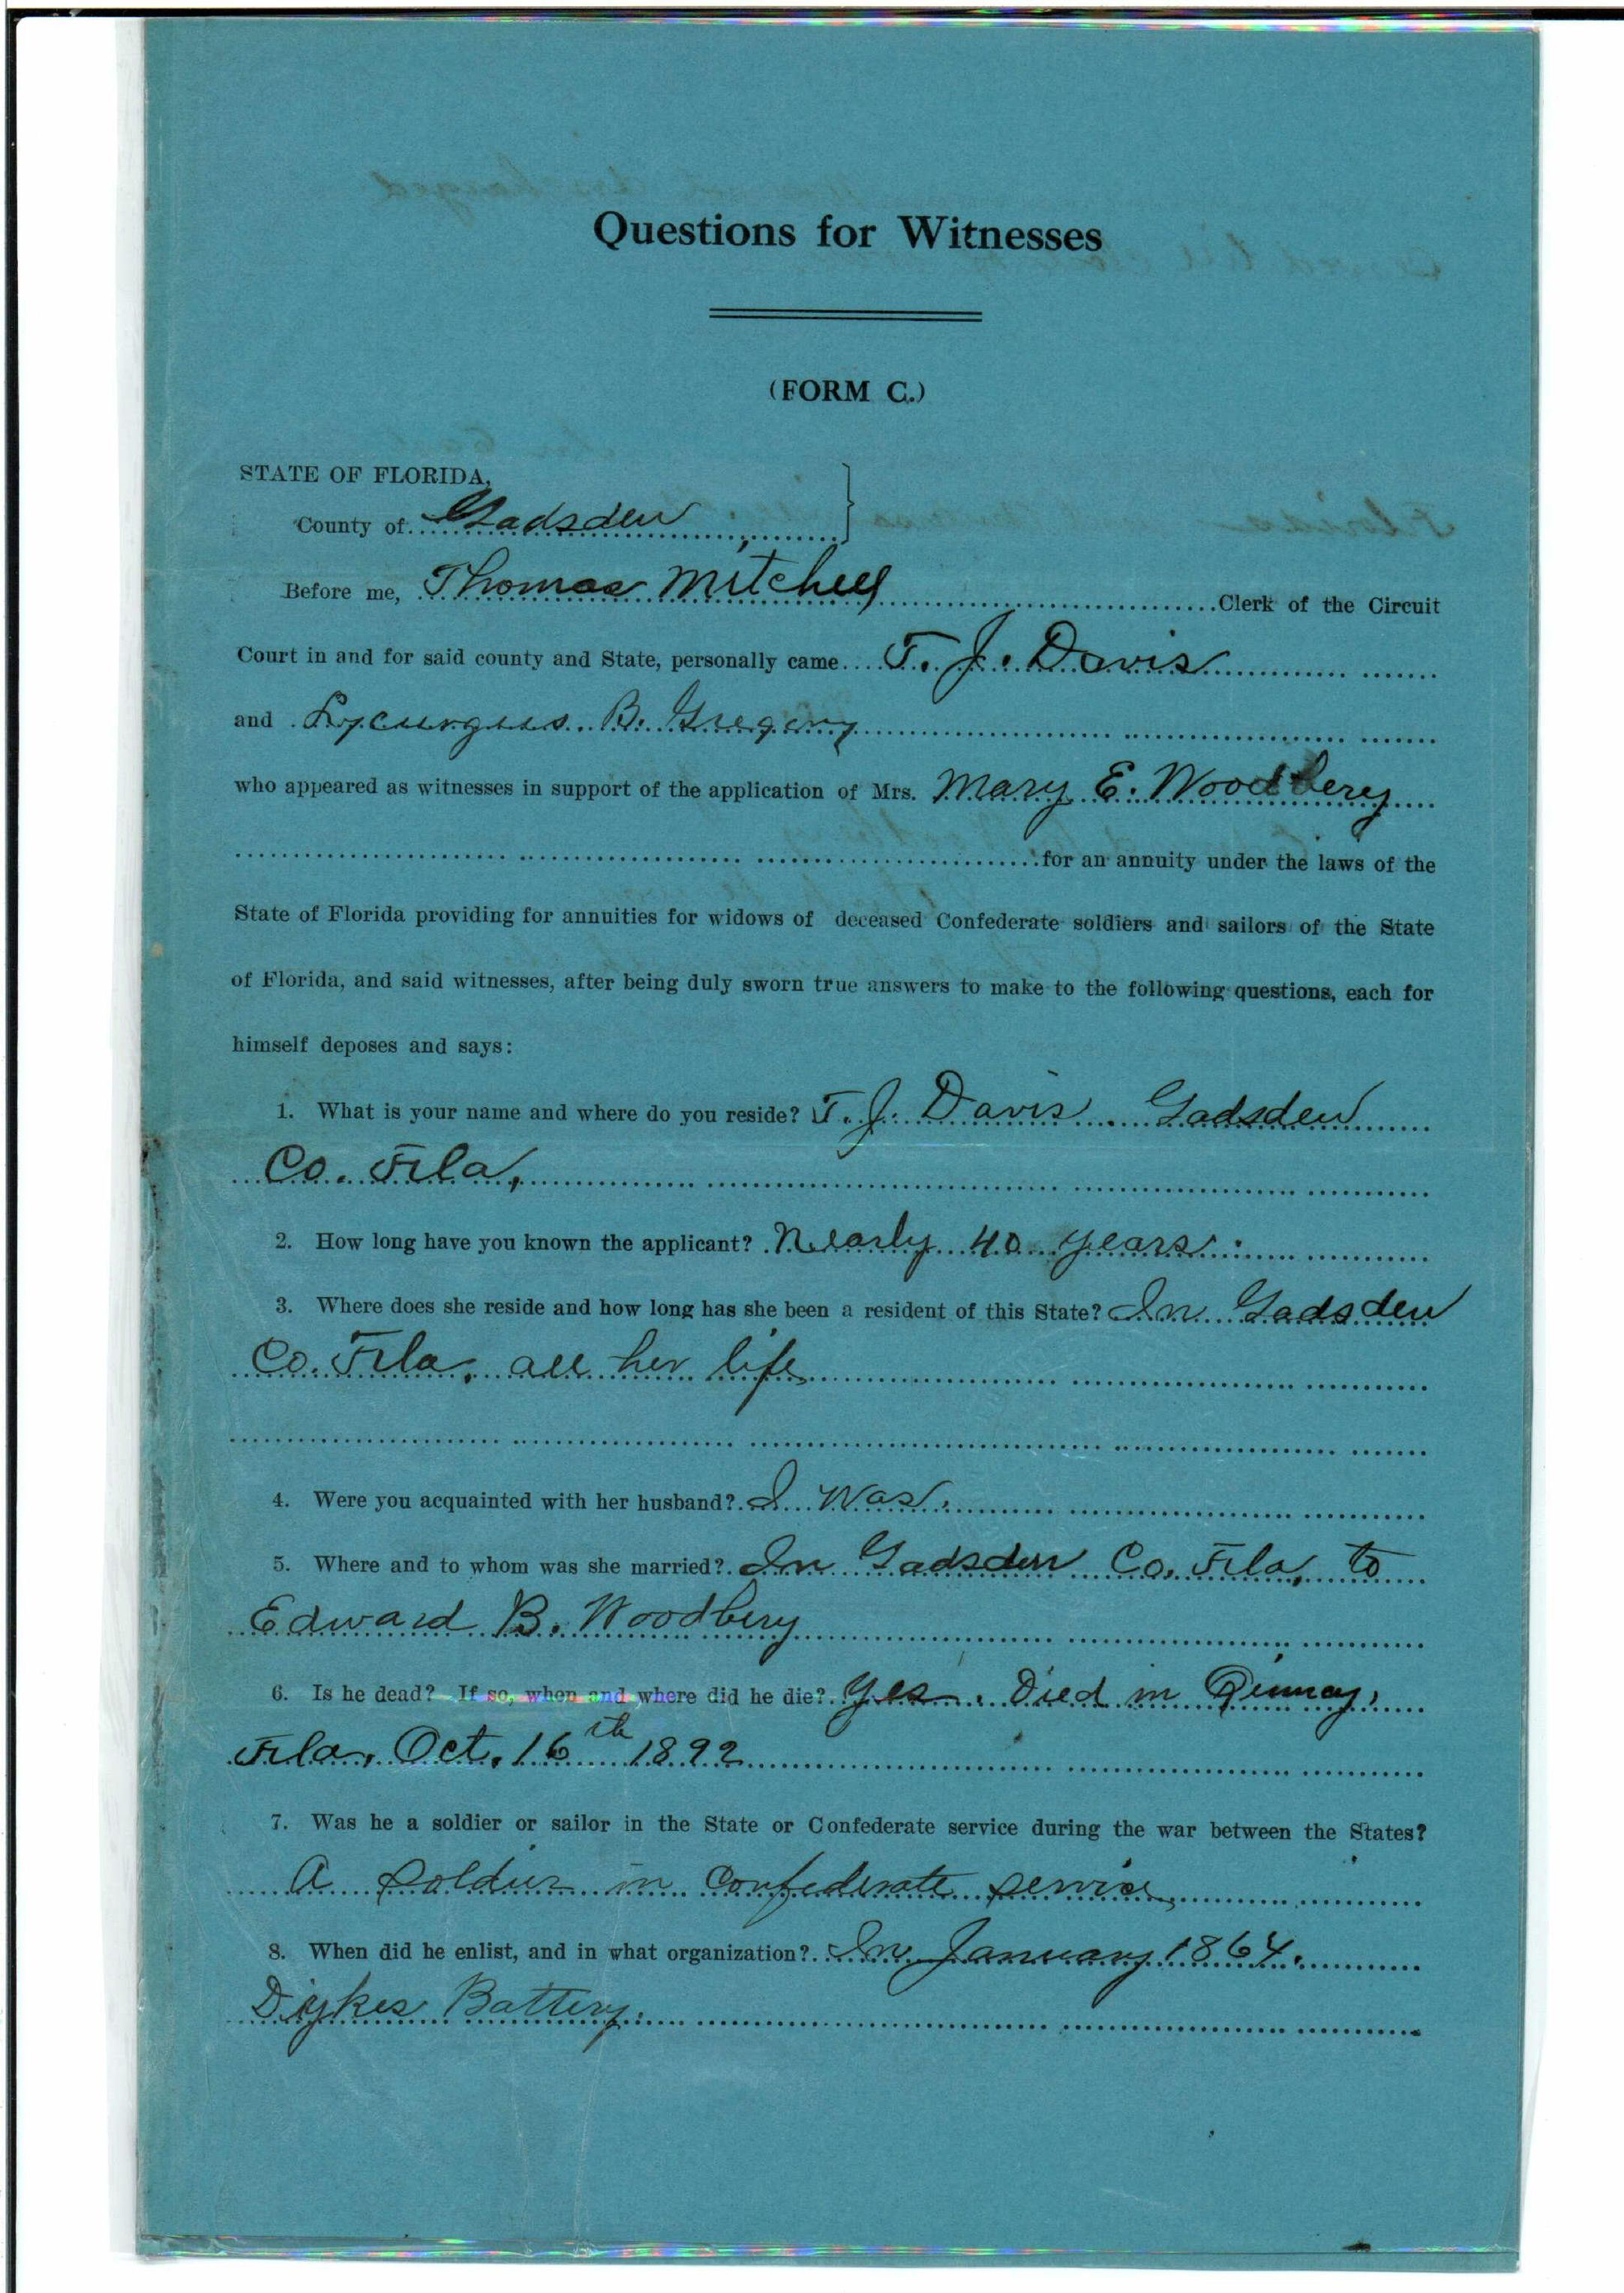 Questions for Witnesses
(FORM C.)
STATE OF FLORIDA,
County of Gadsden
Before me, Thomas Mitchell Clerk of the Circuit
Court in and for said county and State, personally came T. J. Davis
and Lycurgus B. Gregory
who appeared as witnesses in support of the application of Mrs. Mary E. Woodbery
for an annuity under the laws of the
State of Florida providing for annuities for widows of deceased Confederate soldiers and sailors of the State
of Florida, and said witnesses, after being duly sworn true answers to make to the following questions, each for
himself deposes and says:
1. What is your name and where do you reside? T. J. Davis. Gadsden
Co. Fla,
2. How long have you known the applicant? Nearly 40 years.
3. Where does she reside and how long has she been a resident of this State? In Gadsden
Co. Fla, all her life
4. Were you acquainted with her husband? I was.
5. Where and to whom was she married? In Gadsden Co. Fla, to
Edward B. Woodbery
6. Is he dead? If so, when and where did he die? Yes. Died in Quincy,
Fla. Oct. 16th 1892
7. Was he a soldier or sailor in the State or Confederate service during the war between the States?
A soldier in Confederate service,
8. When did he enlist, and in what organization? In January 1864.
Dykes Battery.